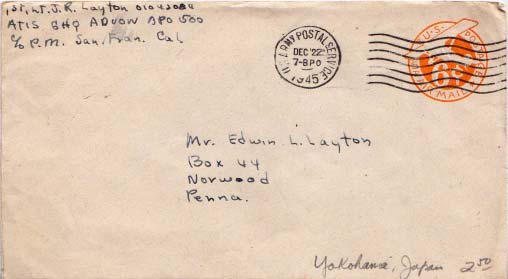 1st, Lt. J. R. Layton 01043084
ATIS GHQ ADVON APO 500
c/o P.M. San. Fran. Cal.
U.S. ARMY POSTAL SERVICE
DEC 22
7-8PO
1945
U.S. POSTAGE
6¢
AIR MAIL
Mr. Edwin L. Layton
Box 44
Norwood
Penna.
Yokohama, Japan 2.50